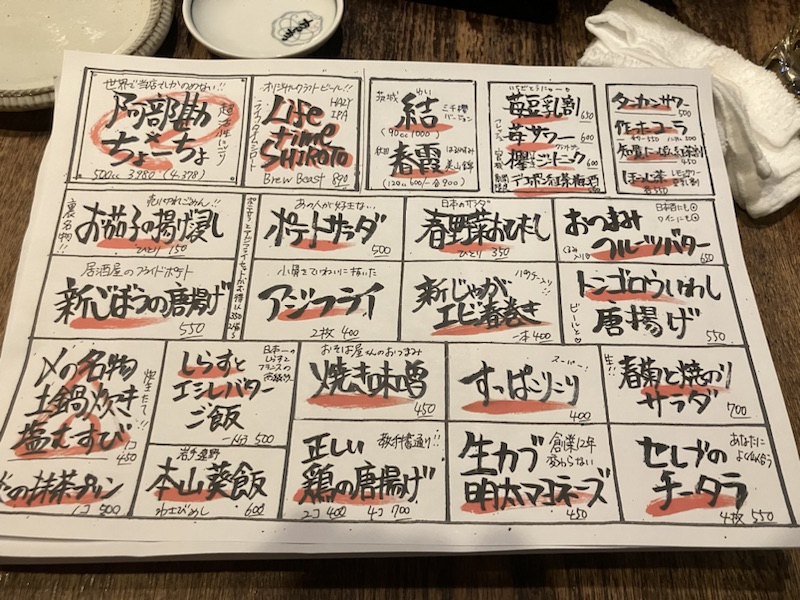 世界で当店でしかのめない!!
阿部勘
ちょこちょ
超活性にごり
500cc 3980 (4.378)
オリジナルクラフトビール!!
Life
time
SHIKOTO
HAZY
IPA
Brew Beast 890
茨城
結
ゆい
三千櫻
バージョン
(90cc 1000)
秋田
春霞
はるがすみ
美山錦
(120cc 600/一合 900)
苺豆乳割 650
苺サワー 600
欅ジントニック 600
デコポン紅茶梅酒
ターカンサワー
500
知覧にっぽん紅茶割
ほうじ茶
売り切れごめん!!
裏名物!!
お茄子の揚げ浸し
ひとり 150
あの人が好きな…
ポテトサラダ
500
日本のサラダ
春野菜おひたし
ひとり 350
日本酒にも◎
ワインにも◎
おつまみ
フルーツバター
650
居酒屋のフライドポテト
新じゃがの唐揚げ
550
アジフライ
2枚 400
新じゃが
エビ春巻き
一本 400
トンゴロウいわし
唐揚げ
ビールと
550
〆の名物
土鍋炊き
塩むすび
炊きたて!!
1コ
450
抹茶プリン
1コ 500
しらすと
エシレバター
ご飯
日本一の
しらすと
フランスの
500
岩手遠野
本山葵飯
わさびめし
600
おそば屋さんのおつまみ
焼き味噌
450
スーパー!
すっぱこりこり
400
生!!
春菊と焼のり
サラダ
700
正しい
教科書通り!!
鶏の唐揚げ
2コ 400 4コ 700
生カブ
創業12年
変わらない
明太マヨネーズ
450
あなたに
セレブの
チータラ
4枚 550